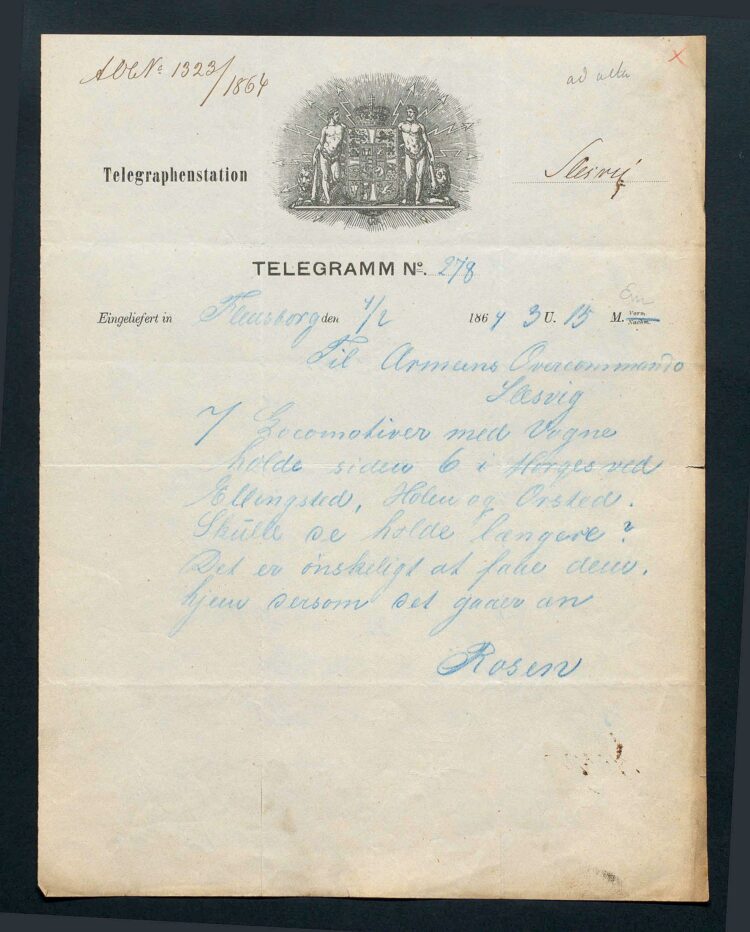 AOC № 1323/1864
ad acta
Telegraphenstation
Slesvig
TELEGRAMM Nº. 278
Eingeliefert in Flensborg den 4/2 1864 3 U. 15 M. Vorm. Nachm. Em
Til Armeens Overcommando
Slesvig
7 Locomotiver med Vogne
holde siden 6 i Morges ved
Ellingsted, Holm og Örsted.
Skulle de holde længere?
Det er önskeligt at faae dem
hjem dersom det gaaer an
Rosen